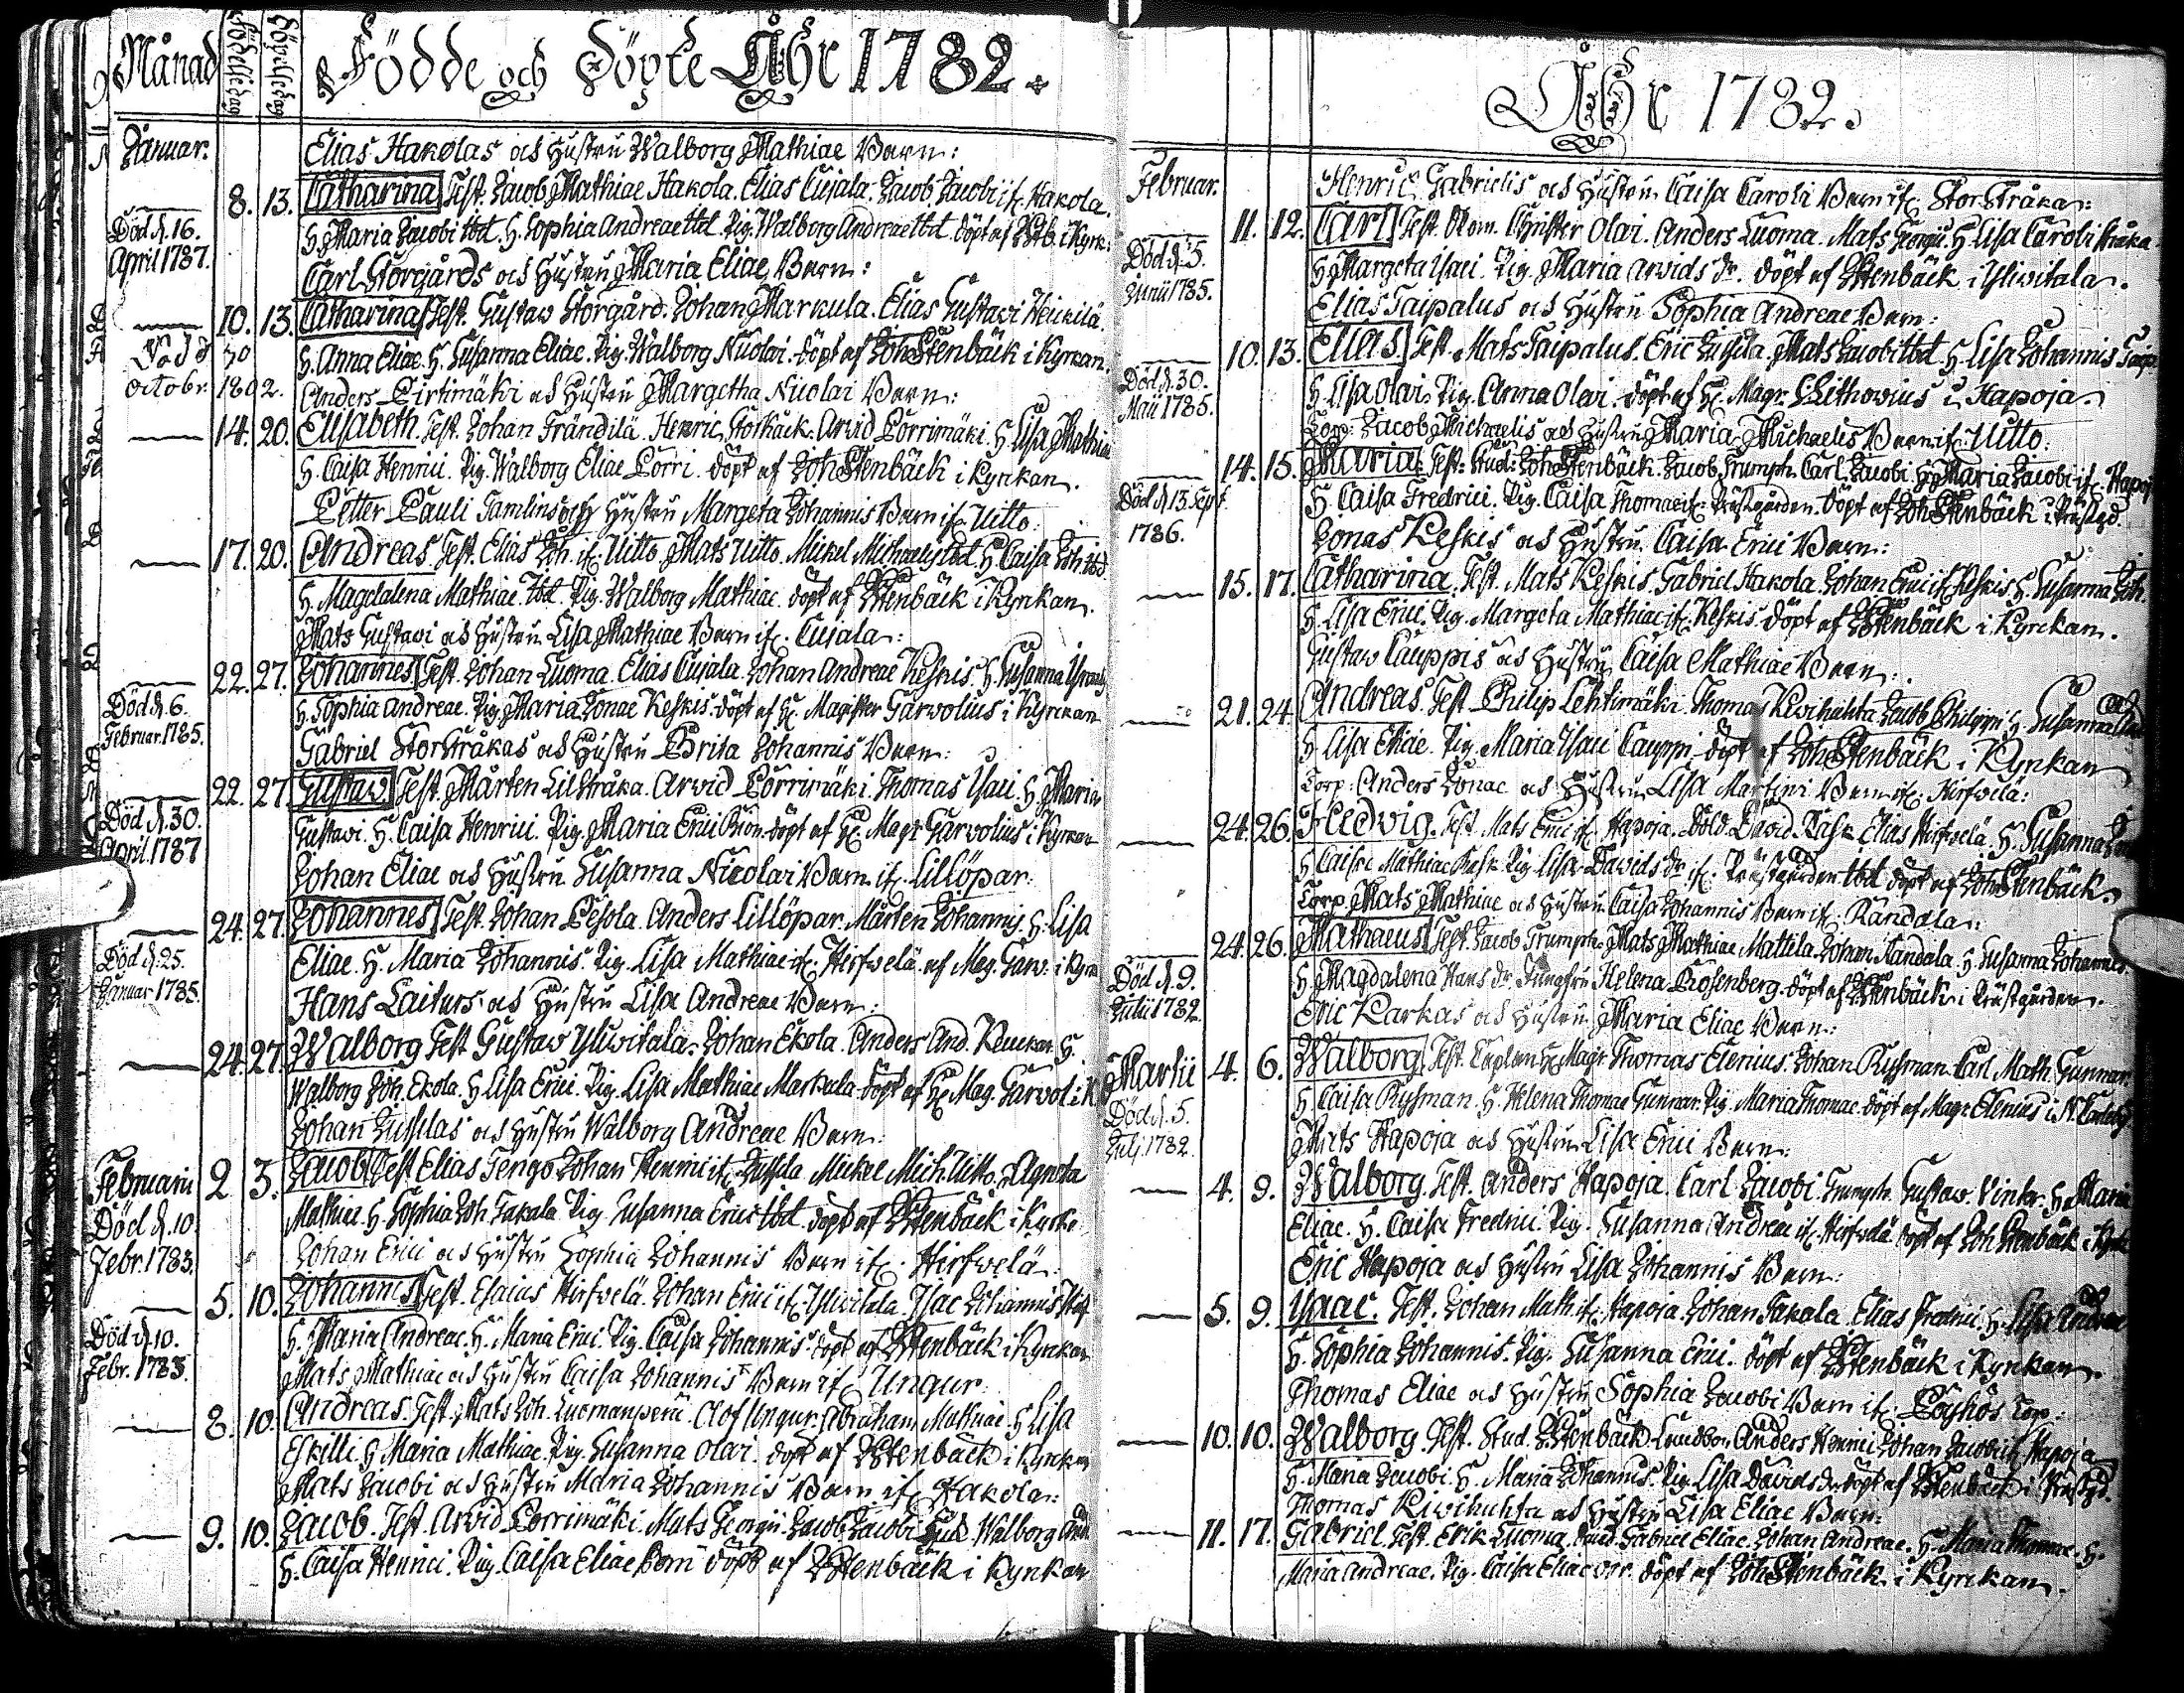 Månad Födelsedag Döpelsedag Födde och Döpte Åhr 1782.
Januar. Elias Hakolas och Hustru Walborg Mathiae Barn:
8. 13. Catharina Test. Jacob Mathiae Hakola. Elias Cujala. Jacob Jacobi if. Hakola.
Död d. 16. H. Maria Jacobi ibd. H. Sophia Andreae ibd. Pig. Walborg Andreae ibd. döpt af i Kyrk:
April 1787. Carl Storgårds och Hustru Maria Eliae Barn:
10. 13. Catharina Test. Gustaw Storgård. Johan Markula. Elias Gustavi Heickilä.
Död d. 30 H. Anna Eliae. H. Susanna Eliae. Pig. Walborg Nicolai. döpt af Joh Stenbäck i Kyrkan.
octobr. 1802. Anders Pirtimäki och Hustru Margetha Nicolai Barn:
14. 20. Elisabeth. Test. Johan Frändilä. Henric Storkack. Arvid Porrimäki. H. Lisa Mathiae
H. Caisa Henrici. Pig. Walborg Eliae Porri. döpt af Joh Stenbäck i Kyrkan.
Petter Pauli Tamlins och Hustru Margeta Johannis Barn if. Uitto:
17. 20. Andreas. Test. Elias Joh. if. Uitto. Mats Uitto. Mickel Michaelis ibd. H. Caisa Joh. ibd.
H. Magdalena Mathiae ibd. Pig. Walborg Mathiae. döpt af Stenbäck i Kyrkan.
Mats Gustavi och Hustru Lisa Mathiae Barn if. Cujala:
22. 27. Johannes Test. Johan Luoma. Elias Cujala. Johan Andreae Keskis. H. Susanna
Död d. 6. H. Sophia Andreae. Pig. Maria Jonae Keskis. döpt af H. Magister Garvolius i Kyrckan
Februar. 1785. Gabriel StorStråkas och Hustru Brita Johannis Barn:
22. 27. Gustaw Test. Mårten LilStråka. Arvid Porrimäki. Thomas Isaci. H. Maria
Död d. 30. Gustavi. H. Caisa Henrici. Pig. Maria Erici döpt af H. Mag. Garvolius i Kyrckan
April. 1787 Johan Eliae och Hustru Susanna Nicolai Barn if. Lillöpar:
24. 27. Johannes Test. Johan Pesola. Anders Lillöpar. Mårten Johannis. H. Lisa
Död d. 25. Eliae. H. Maria Johannis. Pig. Lisa Mathiae if. Hirfwelä. af Mag. Garv. i Kyrk
Januar 1785. Hans Laiturs och Hustru Lisa Andreae Barn:
24. 27. Walborg Test. Gustaw Yliwitala. Johan Ekola. Anders And. H.
Walborg Joh. Ekola. H. Lisa Erici. Pig. Lisa Mathiae Markula. döpt af H. Mag. Garvol. i K
Johan Jussilas och Hustru Walborg Andreae Barn:
Februarii 2 3. Jacob Test. Elias Tengo. Johan Henrici if. Jussila. Mickel Mich. Uitto. H. Agneta
Död d. 10. Mathiae. H. Sophia Joh. Takala. Pig. Susanna Erici ibd. döpt af Stenbäck i Kyrk:
Febr. 1783. Johan Erici och Hustru Sophia Johannis Barn if. Hirfwelä:
5. 10. Johannes Test. Esaias Hirfvelä. Johan Erici if. Yliwitala. Isac Johannis
Död d. 10. H. Maria Andreae. H. Maria Erici. Pig. Caisa Johannis. döpt af Stenbäck i Kyrkan
Febr. 1783. Mats Mathiae och Hustru Caisa Johannis Barn if. Ungur:
8. 10. Andreas. Test. Mats Joh. Luomanperä. Olof Ungur. Abraham Mathiae. H. Lisa
Eskilli. H. Maria Mathiae. Pig. Susanna Olai. döpt af Stenbäck i Kyrckan
Mats Jacobi och Hustru Maria Johannis Barn if. Hakola:
9. 10. Jacob. Test. Arvid Porrimäki. Mats Georgii. Jacob Jacobi. Walborg
H. Caisa Henrici. Pig. Caisa Eliae Porri döpt af Stenbäck i Kyrkan
Åhr 1782.
Februar. Henric Gabrielis och Hustru Caisa Caroli Barn if. StorStråka:
11. 12. Carl Test. Christer Olai. Anders Luoma. Mats Georgii. H. Lisa Caroli Stråka.
Död d. 5. H. Margeta Isaci. Pig. Maria Arvids dr. döpt af Stenbäck i Yliwitala.
Junii 1785. Elias Taipalus och Hustru Sophia Andreae Barn:
10. 13. Elias Test. Mats Taipalus. Eric Jussila. Mats Jacobi ibd. H. Lisa Johannis Taip.
Död d. 30. H. Lisa Olai. Pig. Anna Olai. döpt af H. Magr. Lithovius i Hapoja.
Maii 1785. Torp: Jacob Michaelis och Hustru Maria Michaelis Barn if. Uitto:
14. 15. Maria. Test: Stud: Joh Stenbäck. Jacob Trumph. Carl Jacobi. H. Maria Jacobi if. Hapoj
Död d. 13. Sept. H. Caisa Fredrici. Pig. Caisa Thomae if. Prästgården. döpt af Joh Stenbäck i Prästgd.
1786. Jonas Keskis och Hustru Caisa Erici Barn:
15. 17. Catharina. Test. Mats Keskis. Gabriel Hakola. Johan Erici if. Keskis. H. Susanna Joh.
H. Lisa Erici. Pig. Margeta Mathiae if. Keskis. döpt af Stenbäck i Kyrckan.
Gustaw Cauppis och Hustru Caisa Mathiae Barn:
21. 24. Andreas. Test. Philip Lehtimäki. Thomas Kivihuhta. Jacob Philippi. H. Susanna
H. Lisa Eliae. Pig. Maria Isaci Cauppi. döpt af Joh Stenbäck i Kyrkan
Torp: Anders Jonae och Hustru Lisa Martini Barn if. Hirfvelä:
24. 26. Hedvig. Test. Mats Erici if. Hapoja. David Rask. Elias Hirfvelä. H. Susanna
H. Caisa Mathiae Rask. Pig. Lisa Davids dr. if. Prästgården ibd. döpt af Joh Stenbäck.
Torp. Mats Mathiae och Hustru Caisa Johannis Barn if. Kandala:
24. 26. Mathaeus Test. Jacob Trumph. Mats Mathiae Mattila. Johan Kandala. H. Susanna Johannis.
Död d. 9. H. Magdalena Hans dr. Jungfru Helena Rosenberg. döpt af Stenbäck i Prästgården.
Julii 1782. Eric Karkas och Hustru Maria Eliae Barn:
Martii 4. 6. Walborg Test. Caplan H. Magr. Thomas Elenius. Johan Rysman. Carl Math. Gunnar.
Död d. 5. H. Caisa Rysman. H. Helena Thomae Gunnar. Pig. Maria Thomae. döpt af Magr. Elenius i
Julj. 1782. Mats Hapoja och Hustru Lisa Erici Barn:
4. 9. Walborg. Test. Anders Hapoja. Carl Jacobi Trumph. Gustaw H. Maria
Eliae. H. Caisa Fredrici. Pig. Susanna Andreae if. Hirfvelä. döpt af Joh Stenbäck i Kyrk
Eric Hapoja och Hustru Lisa Johannis Barn:
5. 9. Ysaac. Test. Johan Math. if. Hapoja. Johan Takala. Elias Fredrici. H. Lisa Andreae
H. Sophia Johannis. Pig. Susanna Erici. döpt af Stenbäck i Kyrkan.
Thomas Eliae och Hustru Sophia Jacobi Barn if. Torp:
10. 10. Walborg. Test. Stud. Stenbäck. Anders Henrici. Johan Jacobi if. Hapoja
H. Maria Jacobi. H. Maria Johannis. Pig. Lisa Davids dr. döpt af Stenbäck i Prästgd.
Thomas Kivihuhta och Hustru Lisa Eliae Barn:
11. 17. Gabriel. Test. Erik Luoma. Gabriel Eliae. Johan Andreae. H. Maria Thomae. H.
Maria Andreae. Pig. Caisa Eliae döpt af Joh Stenbäck i Kyrckan.